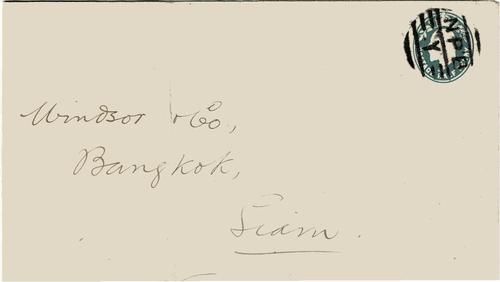 Windsor & Co,
Bangkok,
Siam.
NPB
Y